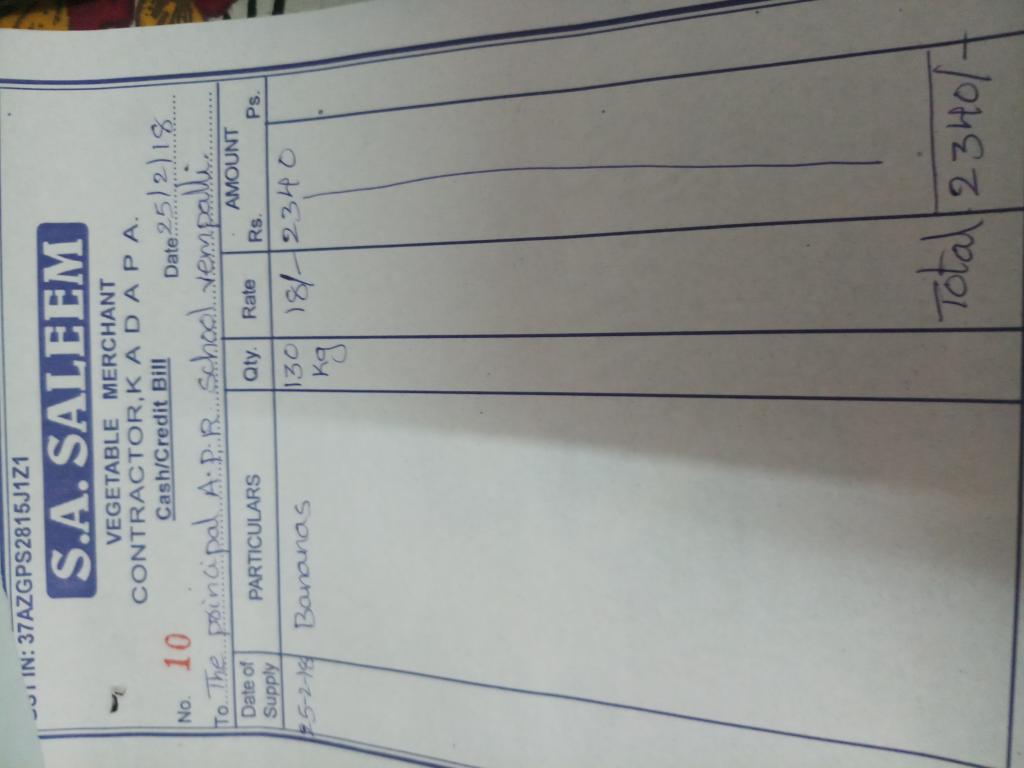 GSTIN: 37AZGPS2815J1Z1
S.A. SALEEM
VEGETABLE MERCHANT
CONTRACTOR, K A D A P A.
Cash/Credit Bill
No. 10 Date 25/2/18
To. The poincipal A.P.R. School vempalli
Date of Supply PARTICULARS Qty. Rate AMOUNT Rs. Ps.
25-2-18 Bananas 130 kg 18/- 2340
Total 2340/-